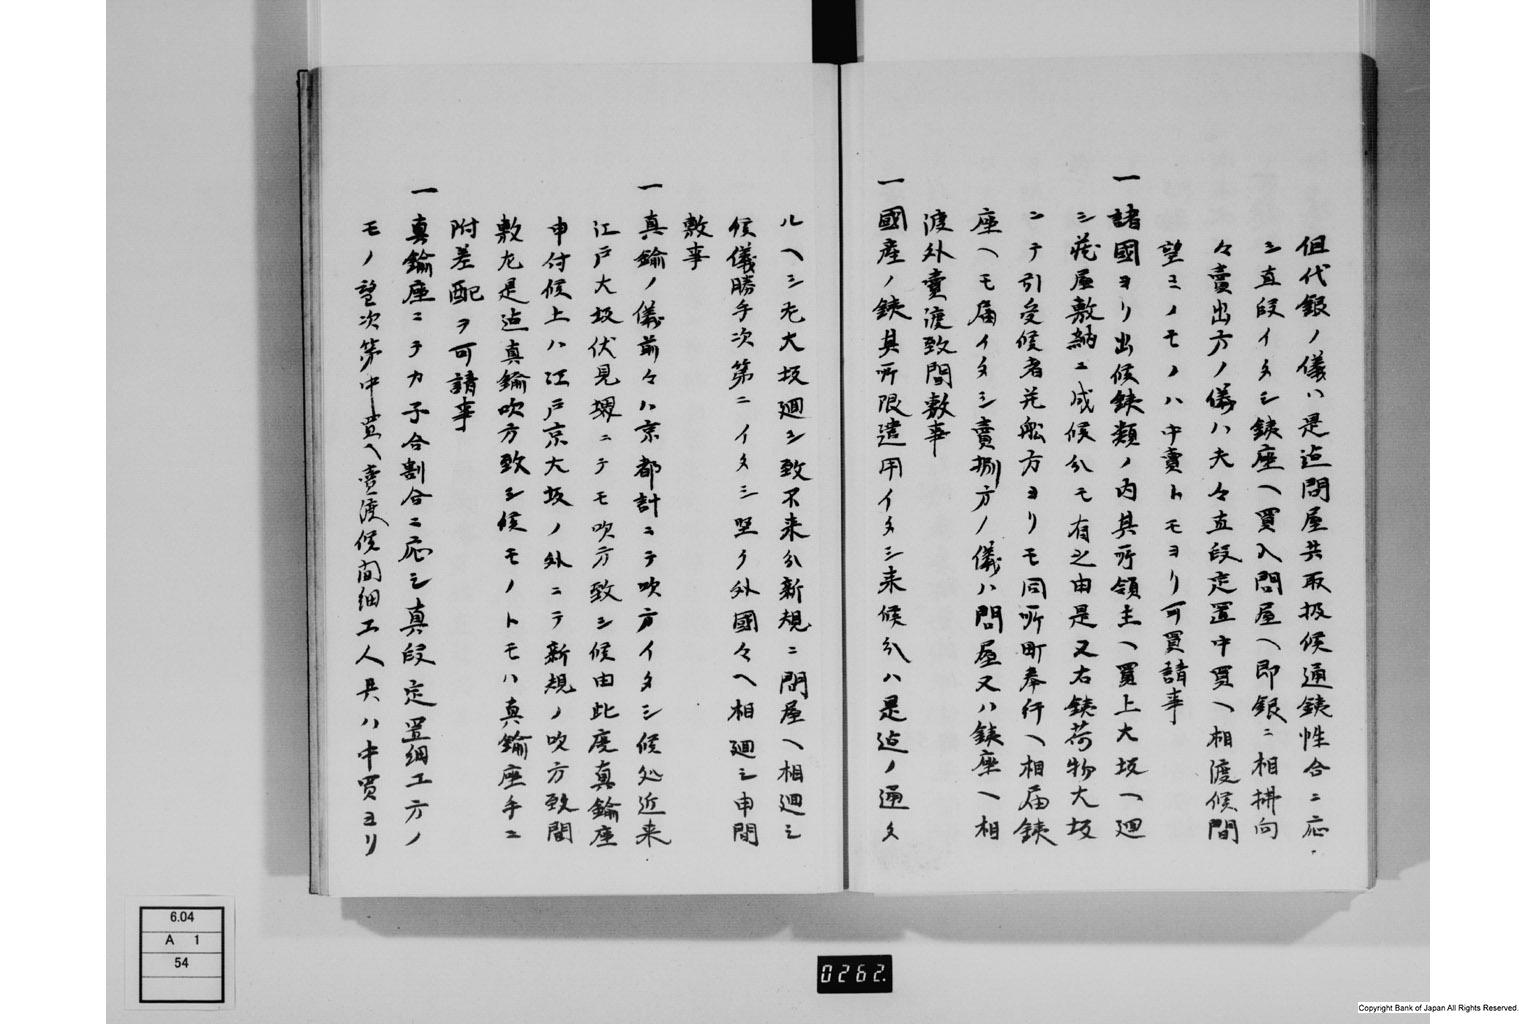 但代銀ノ儀ハ是迄問屋共取扱候通鉄性合ニ応
シ直段イタシ鉄座ヘ買入問屋ヘ即銀ニ相拂向
々賣出方ノ儀ハ夫々直段定置中買ヘ相渡候間
望ミノモノハ中賣トモヨリ可買請事
一諸國ヨリ出候鉄類ノ内其所領主ヘ買上大坂ヘ廻
シ蔵屋敷納ニ成候分モ有之由是又右鉄荷物大坂
ニテ引受候者并舩方ヨリモ同所町奉行ヘ相届鉄
座ヘモ届イタシ賣捌方ノ儀ハ問屋又ハ鉄座ヘ相
渡外賣渡致間敷事
一國産ノ鉄其所限遣用イタシ来候分ハ是迄ノ通タ
ルヘシ尤大坂廻シ致不来分新規ニ問屋ヘ相廻シ
候儀勝手次第ニイタシ堅ク外國々ヘ相廻シ申間
敷事
一真鍮ノ儀前々ハ京都計ニテ吹方イタシ候処近来
江戸大坂伏見堺ニテモ吹方致シ候由此度真鍮座
申付候上ハ江戸京大坂ノ外ニテ新規ノ吹方致間
敷尤是迄真鍮吹方致シ候モノトモハ真鍮座手ニ
附差配ヲ可請事
一真鍮座ニテカ子合割合ニ応シ真段定置細工方ノ
モノ望次第中買ヘ賣渡候間細工人共ハ中買ヨリ
6.04
A 1
54
0262.
Copyright Bank of Japan All Rights Reserved.